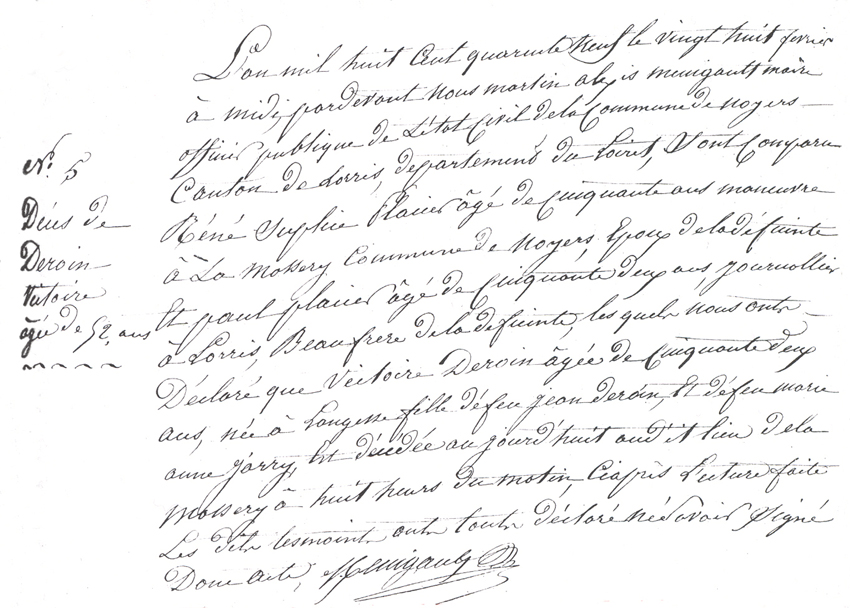 N.° 5
Décès de
Deroin
Victoire
âgée de 52, ans
L'an mil huit Cent quarente Neuf le vingt huit fevrier
à midi, pardevant nous martin alexis menigault maire
officier publique de L'état Civil de la Commune de Noyers
Canton de Lorris, departement du Loiret, Sont Comparu
Réné Sulpice Plaier âgé de Cinquante ans manœuvre
à La Mossery Commune de Noyers, Epoux de la défuinte
Et paul plaier âgé de Cinquante deux ans, journollier
à Lorris, Beaufrere de la défuinte, les quels nous ont
Déclaré que Victoire Deroin âgée de Cinquante deux
ans, née à Langesse fille défeu jean deroin, Et défeu marie
anne jorry, Est décédée au jourd'huit audit lieu de la
Mossery à huit heurs du matin, Ciaprès Lecture faite
Les dits tesmoints ont touts déclaré né savoir Signé
Dont acte, Menigault